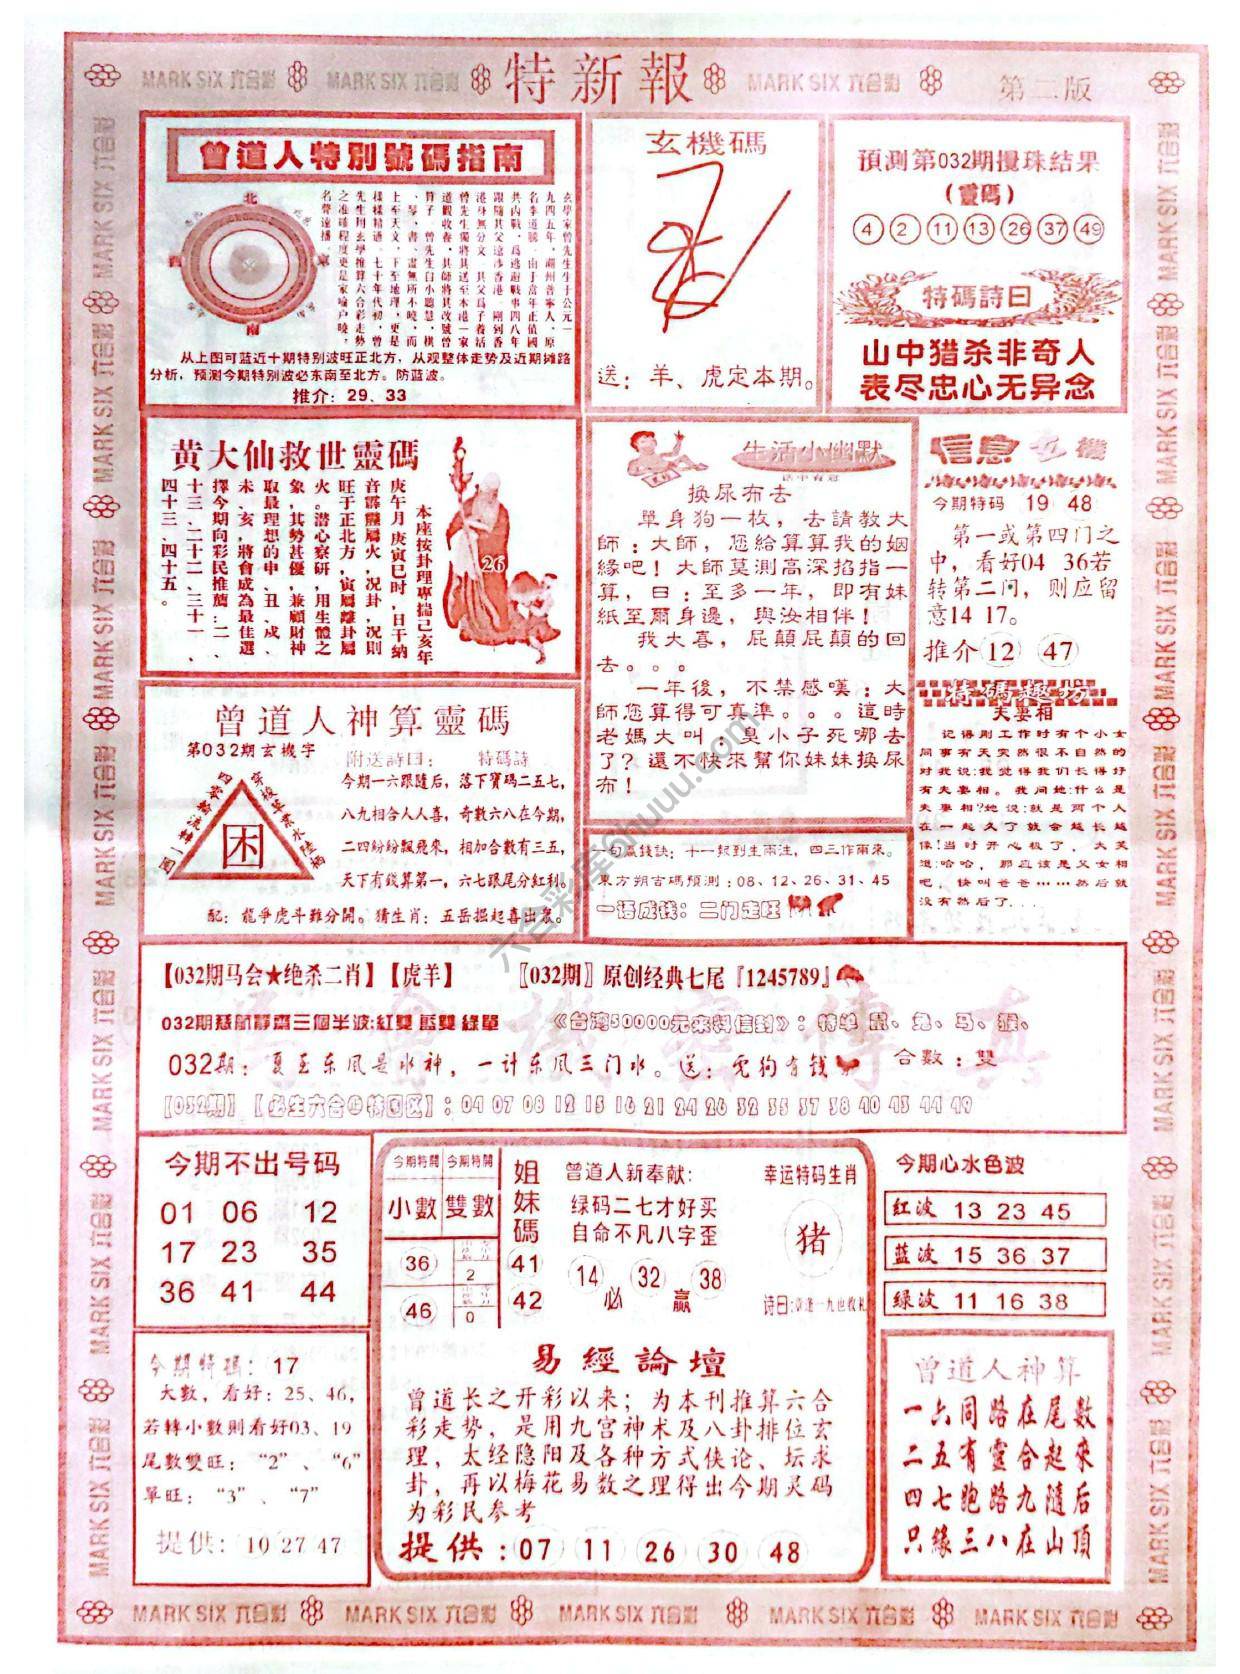 MARK SIX 六合彩
MARK SIX 六合彩
特新報
MARK SIX 六合彩
第二版
曾道人特別號碼指南
北
西
東
南
玄學家曾先生生于公元一
九四五年,潮州普寧人,原
名李道騰,由于當年正值國
共内戰,爲逃避戰事四八年
跟隨其父遠涉香港,剛到香
港身無分文,其父爲了養活
曾先生獨將其送至本港一家
道觀收養,其師將其改號曾
算子,曾先生自小聰慧,棋
、琴、書、畫無所不曉,而
上至天文,下至地理,更是
樣樣精通,七十年代初,曾
先生用玄學推算六合彩走勢
之准確程度更是家喻户曉,
名聲遠播。
从上图可蓝近十期特别波旺正北方，从观整体走势及近期摊路
分析，预测今期特别波必东南至北方。防蓝波。
推介：29、33
玄機碼
送：羊、虎定本期。
預測第032期攪珠結果
(靈碼)
4 2 11 13 26 37 49
特碼詩曰
山中猎杀非奇人
表尽忠心无异念
黄大仙救世靈碼
本座按卦理專揣己亥年
庚午月庚寅巳时,日干纳
音霹靂屬火,况卦,况則
旺于正北方,寅屬離卦屬
火。潜心察研,用生體之
象,其勢甚優,兼顧財神
取最理想的申、丑、戍、
未、亥,將會成為最佳選
擇今期向彩民推薦:二、
十三、二十二、三十一、
四十三、四十五。
26
生活小幽默
換尿布去
單身狗一枚，去請教大
師：大師，您給算算我的姻
緣吧！大師莫測高深掐指一
算，曰：至多一年，即有妹
紙至爾身邊，與汝相伴！
我大喜，屁顛屁顛的回
去。。。
一年後，不禁感嘆：大
師您算得可真準。。。這時
老媽大叫，臭小子死哪去
了？還不快來幫你妹妹換尿
布！
信息玄機
今期特码 19 48
第一或第四门之
中，看好04 36若
转第二问，则应留
意14 17。
推介 12 47
特碼趣坊
夫妻相
记得刚工作时有个小女
同事有天突然很不自然的
对我说:我觉得我们长得好
有夫妻相。我问她:什么是
夫妻相?她说:就是两个人
在一起久了就会越长越
像!当时开心极了，大笑
道:哈哈，那应该是父女相
吧，快叫爸爸……然后就
没有然后了...
曾道人神算靈碼
第032期玄機字
附送詩曰：
特碼詩
困
今期一六跟隨后，落下寶碼二五七，
八九相合人人喜，奇數六八在今期，
二四紛紛飄飛來，相加合數有三五，
天下有錢算第一，六七跟尾分紅利。
配：龍爭虎斗難分開。猜生肖：五岳掘起喜出眾。
一句贏錢訣：十一報到生兩洼，四三作兩來。
東方朔古碼預測：08、12、26、31、45
一语成钱：二门走旺
【032期马会★绝杀二肖】【虎羊】
〖032期〗原创经典七尾『1245789』
032期慈航靜齋三個半波:紅雙 藍雙 綠單
《台湾50000元来料信封》：特单 鼠、兔、马、猴、
032期：夏至东风是水神，一计东风三门水。送：兔狗有钱
合數：雙
【032期】【必生六合㊣特围区】：04 07 08 12 15 16 21 24 26 32 35 37 38 40 43 44 49
今期不出号码
01 06 12
17 23 35
36 41 44
今期特開 今期特開
小數 雙數
36
2
46
0
姐妹碼
41
42
曾道人新奉献:
绿码二七才好买
自命不凡八字歪
14 32 38
必 赢
幸运特码生肖
猪
今期心水色波
红波 13 23 45
蓝波 15 36 37
绿波 11 16 38
今期特碼：17
大數，看好：25、46，
若轉小數則看好03、19
尾數雙旺：“2”、“6”
單旺：“3”、“7”
提供：10 27 47
易經論壇
曾道长之开彩以来；为本刊推算六合
彩走势，是用九宫神术及八卦排位玄
理，太经隐阳及各种方式侠论、坛求
卦，再以梅花易数之理得出今期灵码
为彩民参考
提供：07 11 26 30 48
曾道人神算
一六同路在尾數
二五有靈合起來
四七跑路九隨后
只緣三八在山頂
六合彩库6huuu.com
MARK SIX 六合彩
MARK SIX 六合彩
MARK SIX 六合彩
MARK SIX 六合彩
MARK SIX 六合彩